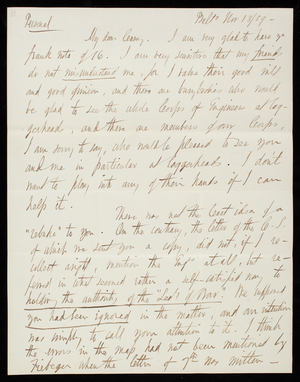 Personal.
Balto Nov 18/79 -
My dear Casey. I am very glad to have yr
frank note of 16. I am very sensitive that my friends
do not misunderstand me, for I value their good will
and good opinion, and there are busybodies who would
be glad to see the whole Corps of Engineers at log-
gerheads, and there are members of our Corps,
I am sorry to say, who would be pleased to see you
and me in particular at loggerheads. I don't
want to play into any of their hands if I can
help it.
There was not the least idea of a
"rebuke" to you. On the contrary, the letter of the
of which we sent you a copy, did not, if I re-
collect aright, mention the Engrs at all, but re-
ferred in what seemed rather a self-satisfied way, to
the authority of the "Dept of War". We supposed
you had been ignored in the matter, and our intention
was simply to call your attention to it. I think
the error in the map had not been mentioned by
when the letter of 7th was written -